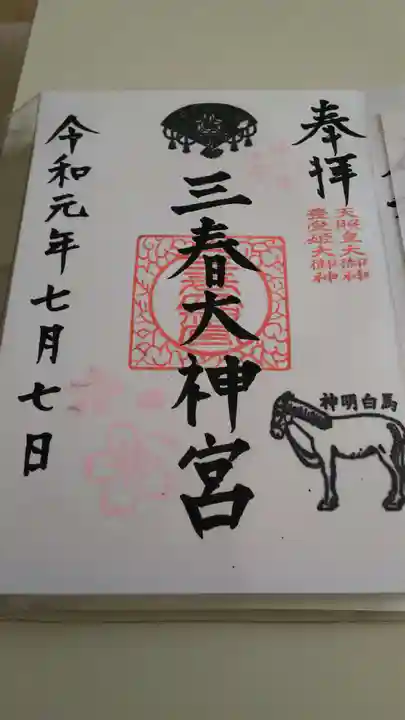 奉拝
天照皇大御神
豊受姫大御神
神明白馬
三春大神宮
令和元年七月七日